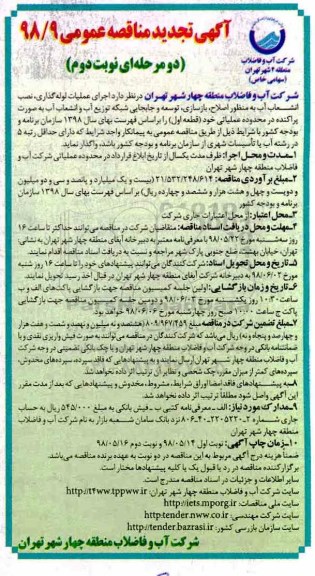 آگهی تجدید مناقصه عمومی ۹۸/۹
(دو مرحله‌ای نوبت دوم)
شرکت آب و فاضلاب
منطقه ۴ شهر تهران
(سهامی خاص)
شرکت آب و فاضلاب منطقه چهار شهر تهران در نظر دارد اجرای عملیات لوله‌گذاری، نصب
انشعاب آب به منظور اصلاح، بازسازی، توسعه و جابجایی شبکه توزیع آب و انشعاب آب به صورت
پراکنده در محدوده عملیاتی خود (قطعه اول) را براساس فهرست بهای سال ۱۳۹۸ سازمان برنامه و
بودجه کشور با شرایط ذیل از طریق مناقصه عمومی به پیمانکار واجد شرایط که دارای حداقل رتبه ۵
در رشته آب یا تأسیسات شهری از سازمان برنامه و بودجه کشور باشد، واگذار نماید.
۱-مدت و محل اجرا: ظرف مدت یکسال از تاریخ ابلاغ قرارداد در محدوده عملیاتی شرکت آب و
فاضلاب منطقه چهار شهر تهران.
۲-مبلغ برآوردی مناقصه: ۲۱/۵۳۲/۲۴۸/۶۱۴ (بیست و یک میلیارد و پانصد و سی و دو میلیون
و دویست و چهل و هشت هزار و ششصد و چهارده ریال) بر اساس فهرست بهای سال ۱۳۹۸ سازمان
برنامه و بودجه کشور
۳-محل اعتبار: از محل اعتبارات جاری شرکت
۴-مهلت و محل دریافت اسناد مناقصه: متقاضیان شرکت در مناقصه می‌توانند حداکثر تا ساعت ۱۶
روز سه‌شنبه مورخ ۹۸/۰۵/۲۲ با معرفی‌نامه معتبر به دبیرخانه آبفای منطقه چهار شهر تهران به نشانی:
تهران، خیابان بهشت ضلع جنوبی پارک شهر مراجعه و نسبت به دریافت اسناد مناقصه اقدام نمایند.
۵-تاریخ و محل تحویل اسناد: شرکت‌کنندگان می‌توانند پیشنهادهای خود را تا ساعت ۱۶ روز شنبه
مورخ ۹۸/۰۶/۰۲ به دبیرخانه شرکت آبفای منطقه چهار شهر تهران در قبال أخذ رسید تحویل نمایند.
۶-تاریخ و زمان بازگشایی: اولین جلسه کمیسیون مناقصه جهت بازگشایی پاکت‌های الف و ب
ساعت ۱۰:۳۰ روز یکشنبه مورخ ۹۸/۰۶/۰۳ و دومین جلسه کمیسیون مناقصه جهت بازگشایی
پاکت ج ساعت ۱۰:۰۰ صبح روز چهارشنبه مورخ ۹۸/۰۶/۰۶ خواهد بود.
۷-مبلغ تضمین شرکت در مناقصه مبلغ ۸۰۹/۹۶۷/۴۵۹ (هشتصد و نه میلیون و نهصد و شصت و هفت هزار
و چهارصد و پنجاه و نه) ریال می‌باشد که شرکت‌کنندگان در مناقصه می‌توانند به صورت فیش واریزی نقدی و یا
ضمانتنامه بانکی در وجه شرکت آب و فاضلاب منطقه چهار شهر تهران و یا چک بانکی تضمینی در وجه شرکت
آب و فاضلاب منطقه چهار شهر تهران ارسال نمایند و به پیشنهادهایی که فاقد سپرده، سپرده‌های مخدوش،
سپرده‌های کمتر از میزان مقرر، چک شخصی و نظایر آن ترتیب اثر داده نخواهد شد.
۸-به پیشنهادهای فاقد امضا اوراق شرایط، مشروط، مخدوش و پیشنهادهایی که بعد از مدت مقرر
این آگهی واصل شود مطلقاً ترتیب اثر داده نخواهد شد.
۹-مدارک مورد نیاز: الف - معرفی‌نامه کتبی ب - فیش بانکی به مبلغ ۵۴۵/۰۰۰ ریال به حساب
منطقه چهار شهر تهران
۱۰-زمان چاپ آگهی: نوبت اول ۹۸/۰۵/۱۴ و نوبت دوم ۹۸/۰۵/۱۶
ضمناً هزینه درج آگهی مربوط به این مناقصه در دو نوبت به عهده برنده مناقصه می‌باشد.
برگزارکننده مناقصه در رد یا قبول یک یا کلیه پیشنهادها مختار است.
سایر اطلاعات و جزئیات در اسناد مناقصه مندرج است.
سایت شرکت آب و فاضلاب منطقه چهار شهر تهران: http://t4ww.tpww.ir
سایت ملی مناقصات: http://iets.mporg.ir
سایت شرکت مهندسی: http:tender.nww.co.ir
سایت سازمان بازرسی کشور: http://tender.bazrasi.ir
شرکت آب و فاضلاب منطقه چهار شهر تهران